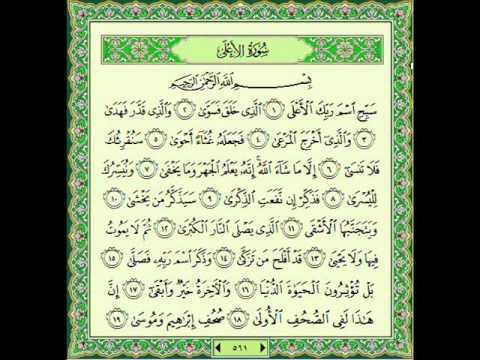 سُورَةُ الأَعْلَىٰ
بِسْمِ اللَّهِ الرَّحْمَٰنِ الرَّحِيمِ
سَبِّحِ اسْمَ رَبِّكَ الْأَعْلَى ١ الَّذِي خَلَقَ فَسَوَّىٰ ٢ وَالَّذِي قَدَّرَ فَهَدَىٰ
٣ وَالَّذِي أَخْرَجَ الْمَرْعَىٰ ٤ فَجَعَلَهُ غُثَاءً أَحْوَىٰ ٥ سَنُقْرِئُكَ
فَلَا تَنسَىٰ ٦ إِلَّا مَا شَاءَ اللَّهُ إِنَّهُ يَعْلَمُ الْجَهْرَ وَمَا يَخْفَىٰ ٧ وَنُيَسِّرُكَ
لِلْيُسْرَىٰ ٨ فَذَكِّرْ إِن نَّفَعَتِ الذِّكْرَىٰ ٩ سَيَذَّكَّرُ مَن يَخْشَىٰ ١٠
وَيَتَجَنَّبُهَا الْأَشْقَى ١١ الَّذِي يَصْلَى النَّارَ الْكُبْرَىٰ ١٢ ثُمَّ لَا يَمُوتُ
فِيهَا وَلَا يَحْيَىٰ ١٣ قَدْ أَفْلَحَ مَن تَزَكَّىٰ ١٤ وَذَكَرَ اسْمَ رَبِّهِ فَصَلَّىٰ ١٥
بَلْ تُؤْثِرُونَ الْحَيَوٰةَ الدُّنْيَا ١٦ وَالْآخِرَةُ خَيْرٌ وَأَبْقَىٰ ١٧ إِنَّ
هَٰذَا لَفِي الصُّحُفِ الْأُولَىٰ ١٨ صُحُفِ إِبْرَاهِيمَ وَمُوسَىٰ ١٩
٥٦١